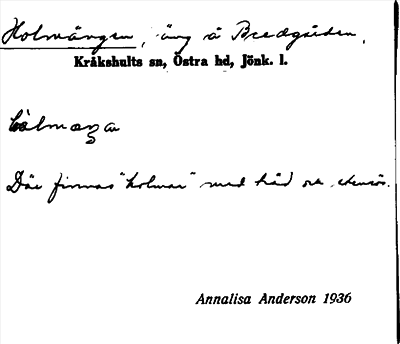 Holmängen, äng å Bredgården.
Kråkshults sn, Östra hd, Jönk. l.
Där finnas "holmar" med träd och stenrös.
Annalisa Anderson 1936